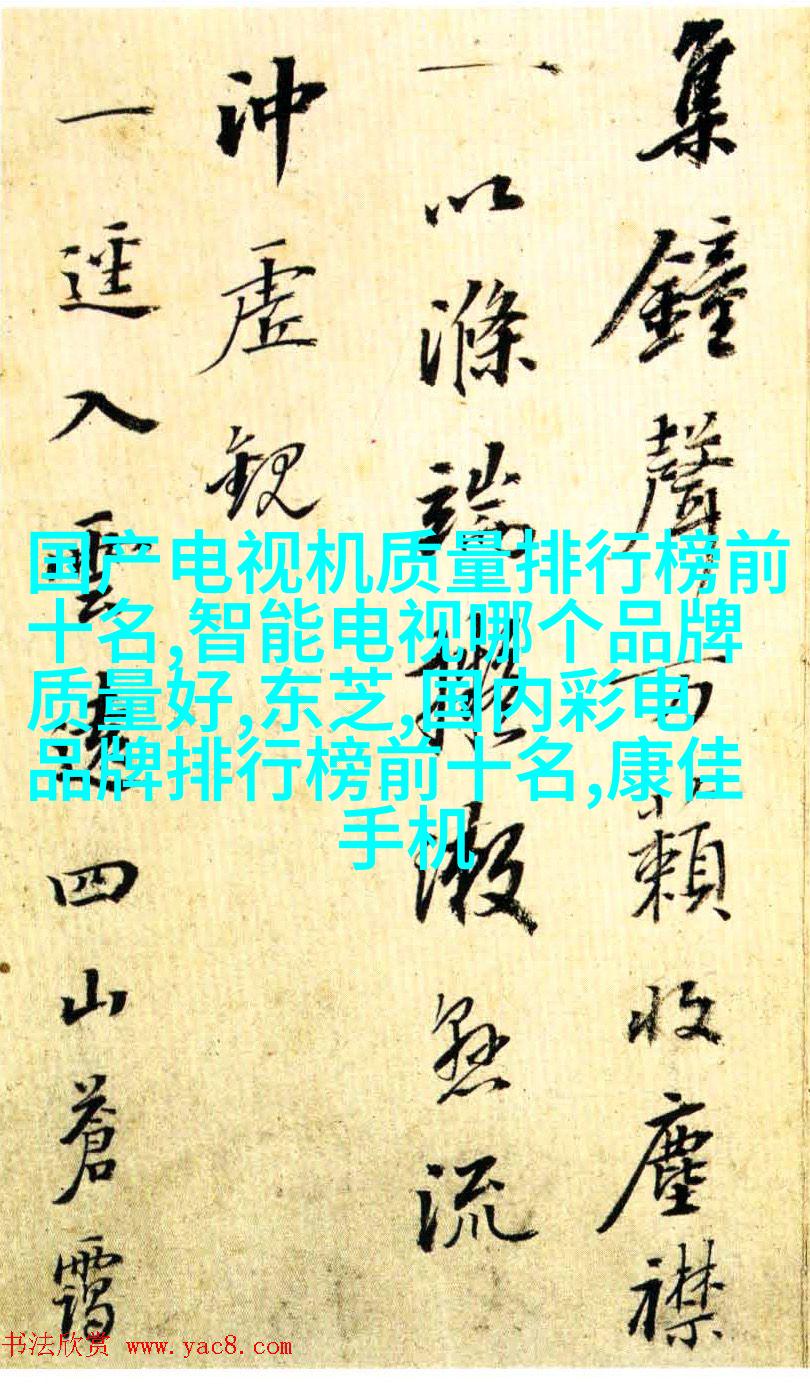 集鐘聲万籟收塵襟
一以滌端擬漱懸流
沖虛觀
一逕入雲邃四山蒼靄
国产电视机质量排行榜前
十名,智能电视哪个品牌
质量好,东芝,国内彩电
品牌排行榜前十名,康佳
手机
书法欣赏 www.yac8.com